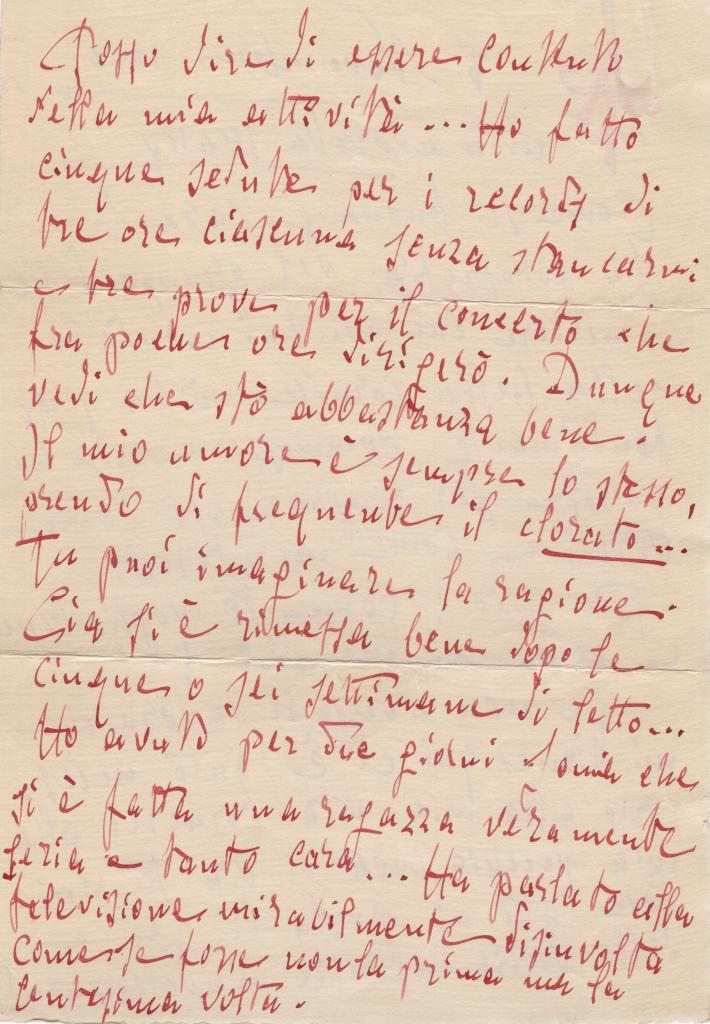 Posso dire di essere contento
della mia attività... Ho fatto
cinque sedute per i records di
tre ore ciascuna senza stancarmi
e tre prove per il concerto che
fra poche ore dirigerò. Dunque
vedi che stò abbastanza bene.
Il mio umore è sempre lo stesso,
prendo di frequente il clorato...
Tu puoi imaginare la ragione.
Cia si è rimessa bene dopo le
cinque o sei settimane di letto...
Ho avuto per due giorni Sonia che
si è fatta una ragazza veramente
seria e tanto cara... Ha parlato alla
televisione mirabilmente disinvolta
come se fosse non la prima ma la
centesima volta.